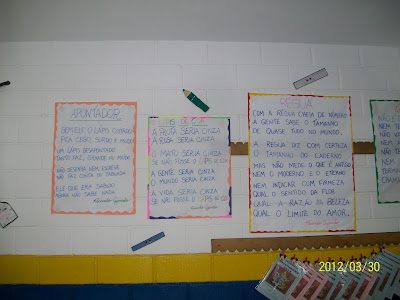 APONTADOR
SEM ELE O LÁPIS COITADO
FICA CEGO SURDO E MUDO
UM LÁPIS DESAPONTADO
TANTO FAZ, GRANDE OU MIÚDO
NÃO DESENHA NEM ESCREVE
NÃO FAZ CONTA DE TABUADA
ELE QUE ERA SABIDO
AGORA NÃO SABE NADA
LÁPIS DE COR
A FRUTA SERIA CINZA
A RUA SERIA CINZA
O MATO SERIA CINZA
SE NÃO FOSSE O LÁPIS DE COR
A GENTE SERIA CINZA
O MUNDO SERIA CINZA
A VIDA SERIA CINZA
SE NÃO FOSSE O LÁPIS DE COR
RÉGUA
COM A RÉGUA CHEIA DE NÚMERO
A GENTE SABE O TAMANHO
DE QUASE TUDO NO MUNDO.
A RÉGUA DIZ COM CERTEZA
O TAMANHO DO CADERNO
MAS NÃO MEDE O QUE É ANTIGO
NEM O MODERNO E O ETERNO
NEM INDICAR COM FIRMEZA
QUAL O SENTIDO DA FLOR
QUAL A RAZÃO DA BELEZA
QUAL O LIMITE DO AMOR.
2012/03/30